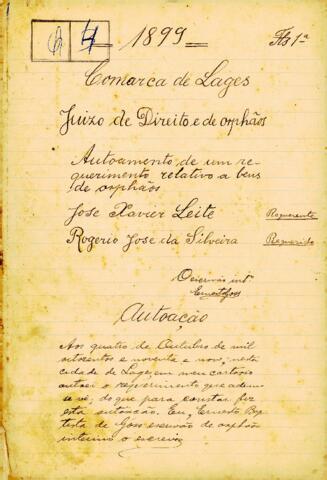 1899 Fls 1ª
Comarca de Lages
Juizo de Direito e de orphãos
Autoamento de um re-
querimento relativo a bens
de orphãos
José Xavier Leite Requerente
Rogerio José da Silveira Requerido
O escrivão intº
Ernesto Goss
Autoação
Aos quatro de Outubro de mil
oitocentos e noventa e nove, nesta
cidade de Lages, em meu cartorio
autuei o requerimento que adian-
se vê, do que para constar fiz
esta autuação. Eu, Ernesto Bap
tista de Goss escrivão de orphãos
interino o escrevi